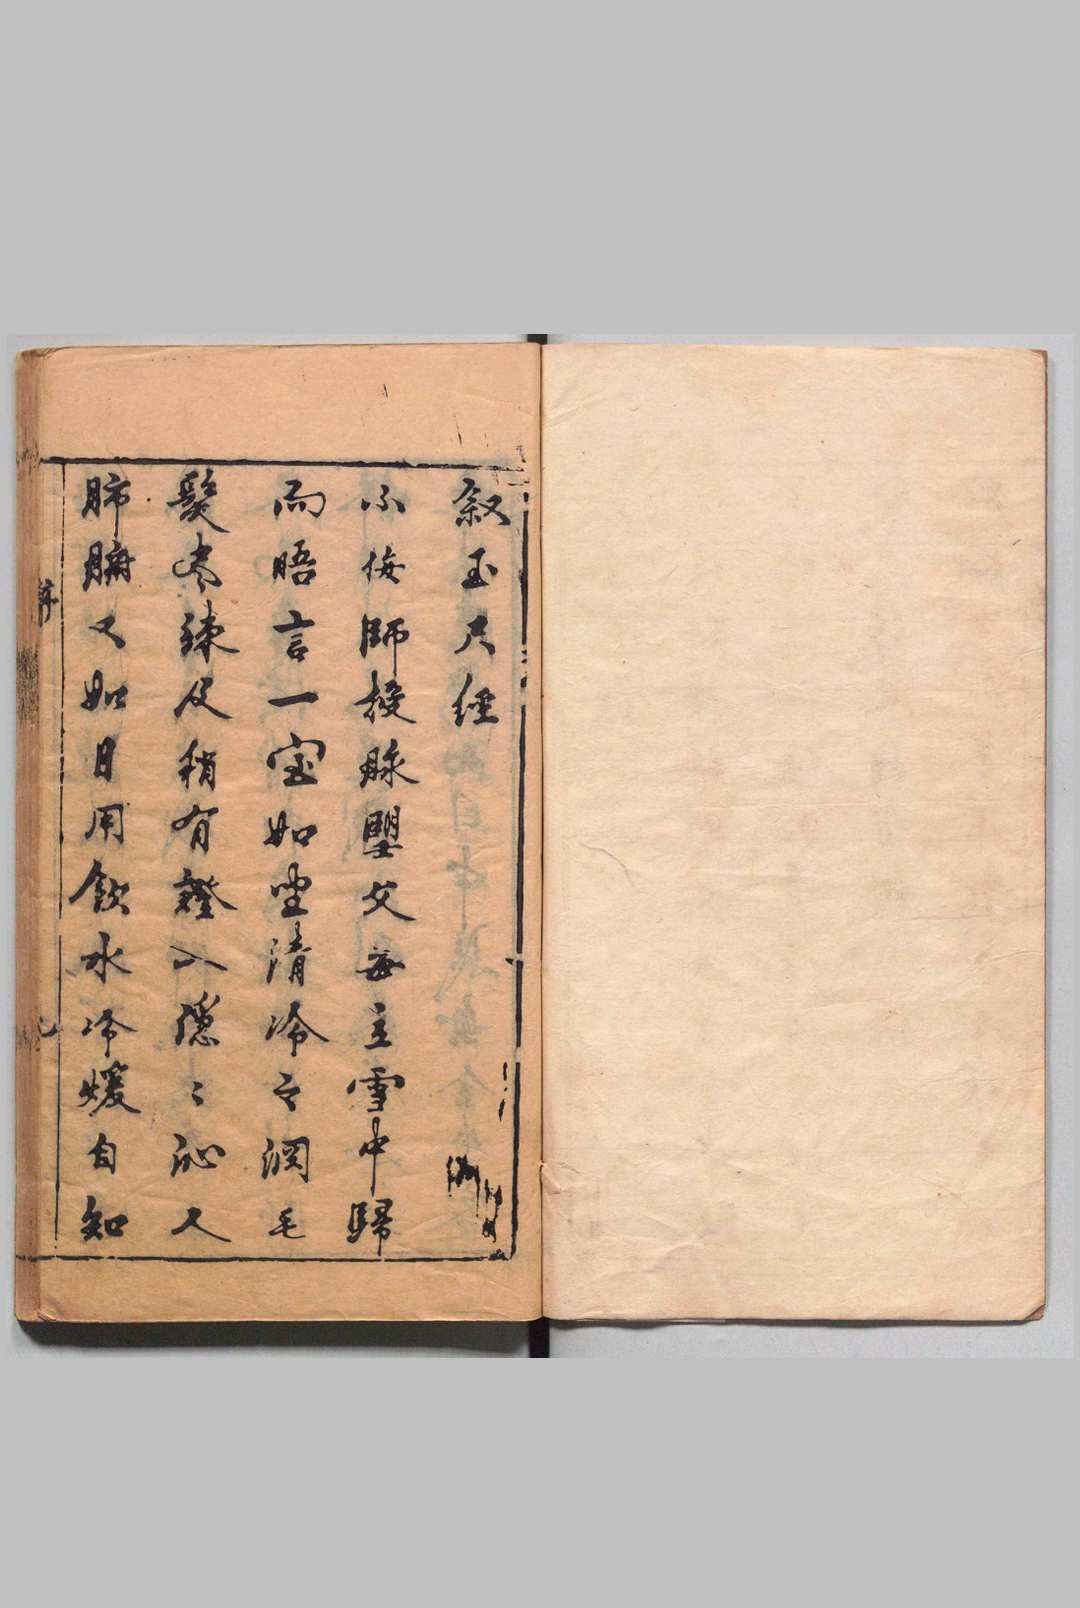 叙玉尺經
小侮師授脉塱父每主雪中歸
而晤言一室如坐清冷之淵毛
髮盡竦及稍有證入隱〻沁人
肺腑又如日用飲水冷煖自知